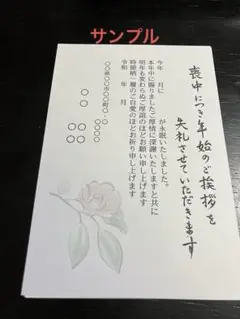 サンプル
喪中につき年始のご挨拶を
失礼させていただきます
今年 月に が永眠いたしました。
本年中に賜りましたご厚情に深謝いたしますと共に
明年も変わらぬご厚誼のほどお願い申し上げます
時節柄一層のご自愛のほどお祈り申し上げます
令和 年 月
〇〇県〇〇市〇〇町〇-〇
〇〇 〇〇
〇〇